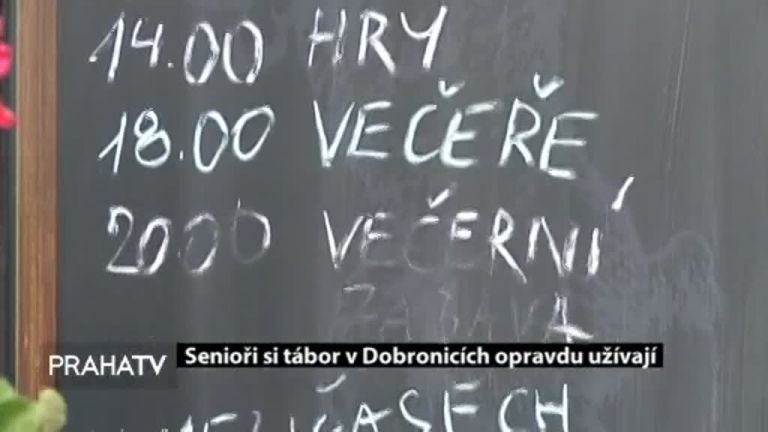 14.00 HRY
18.00 VEČEŘE
20.00 VEČERNÍ
ZÁBAVA
PRAHATV
Senioři si tábor v Dobronicích opravdu užívají
ČASECH